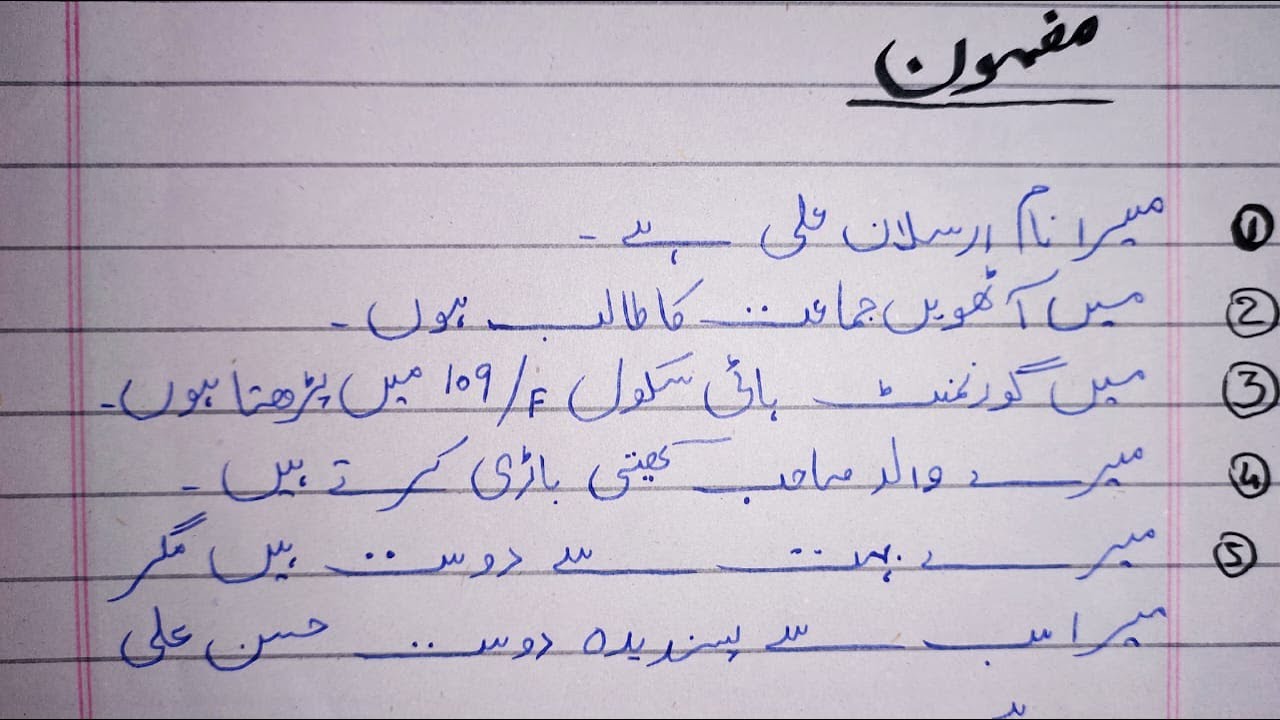 مضمون
① میرا نام ارسلان علی ہے۔
② میں آٹھویں جماعت کا طالب ہوں۔
③ میں گورنمنٹ ہائی سکول 109/F میں پڑھتا ہوں۔
④ میرے والد صاحب کھیتی باڑی کرتے ہیں۔
⑤ میرے بہت سے دوست ہیں مگر
میرا سب سے پسندیدہ دوست حسن علی